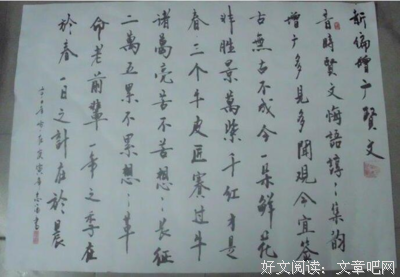 新编增广贤文
昔时贤文诲语谆〻集韵
增广多见多闻观今宜鉴
古无古不成今一朵鲜花
胜景万紫千红才是
春三个牛皮匠赛过
诸葛亮苦不苦想〻长征
二万五累不累想〻革
命老前辈一年之季在
於春一日之计在於晨
好文阅读：文章吧网